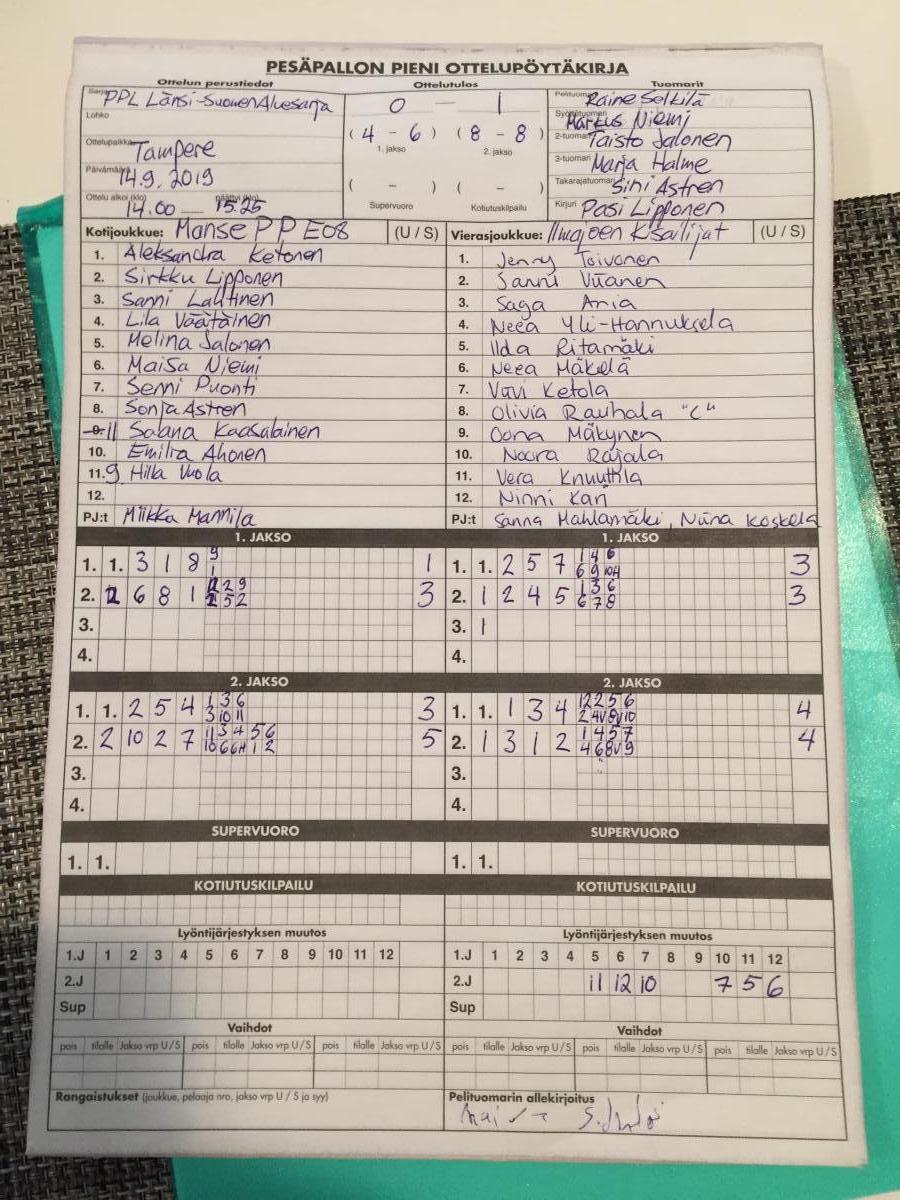 PESÄPALLON PIENI OTTELUPÖYTÄKIRJA
Ottelun perustiedot Ottelutulos Tuomarit
Sarja PPL Länsi-Suomen Aluesarja 0 - 1 Pelituomari Raine Selkilä
Lohko (4 - 6) (8 - 8) Syöttötuomari Markus Niemi
1. jakso 2. jakso
Ottelupaikka Tampere 2-tuomari Taisto Jalonen
Päivämäärä 14.9.2019 3-tuomari Marja Halme
( - ) ( - ) Takarajatuomari Sini Astren
Ottelu alkoi (klo) 14.00 — päättyi (klo) 15.25 Supervuoro Kotiutuskilpailu Kirjuri Pasi Lipponen
Kotijoukkue: Manse PP E08 (U / S) Vierasjoukkue: Ilmajoen Kisailijat (U / S)
1. Aleksandra Ketonen 1. Jenny Toivonen
2. Sirkku Lipponen 2. Sanni Viianen
3. Sanni Lahtinen 3. Saga Aria
4. Lila Väätäinen 4. Neea Yli-Hannuksela
5. Melina Jalonen 5. Ilda Ritamäki
6. Maisa Niemi 6. Neea Mäkelä
7. Senni Puonti 7. Vivi Ketola
8. Sonja Astren 8. Olivia Rauhala "C"
9. 11 Salana Kaasalainen 9. Oona Mäkynen
10. Emilia Ahonen 10. Noora Rajala
11. 9 Hilla Vuola 11. Vera Knuuttila
12. 12. Ninni Kari
PJ:t Miikka Mannila PJ:t Sanna Mahlamäki, Niina Koskela
1. JAKSO 1. JAKSO
1. 1. 3 1 8 9 1 1 1. 1. 2 5 7 1 4 6 6 9 10H 3
2. 2 6 8 1 2 9 2 5 2 3 2. 1 2 4 5 1 3 6 6 7 8 3
3. 3. 1
4. 4.
2. JAKSO 2. JAKSO
1. 1. 2 5 4 1 3 6 3 10 11 3 1. 1. 1 3 4 12 2 5 6 2 4V 8V 10 4
2. 2 10 2 7 11 3 4 5 6 10 6 6H 1 2 5 2. 1 3 1 2 1 4 5 7 4 6 8V 9 4
3. 3.
4. 4.
SUPERVUORO SUPERVUORO
1. 1. 1. 1.
KOTIUTUSKILPAILU KOTIUTUSKILPAILU
Lyöntijärjestyksen muutos Lyöntijärjestyksen muutos
1.J 1 2 3 4 5 6 7 8 9 10 11 12 1.J 1 2 3 4 5 6 7 8 9 10 11 12
2.J 2.J 11 12 10 7 5 6
Sup Sup
Vaihdot Vaihdot
pois tilalle Jakso vrp U / S pois tilalle Jakso vrp U / S pois tilalle Jakso vrp U / S pois tilalle Jakso vrp U / S pois tilalle Jakso vrp U / S pois tilalle Jakso vrp U / S
Rangaistukset (joukkue, pelaaja nro, jakso vrp U / S ja syy) Pelituomarin allekirjoitus